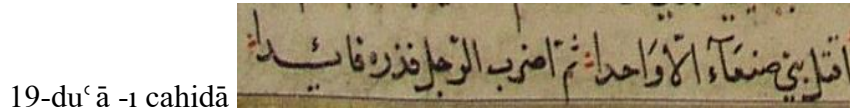 19-duʿā -ı cahidā
اقتل بني صنعَآء الّا وَاحدا ثم اضرب الرّجل فذره قائدا